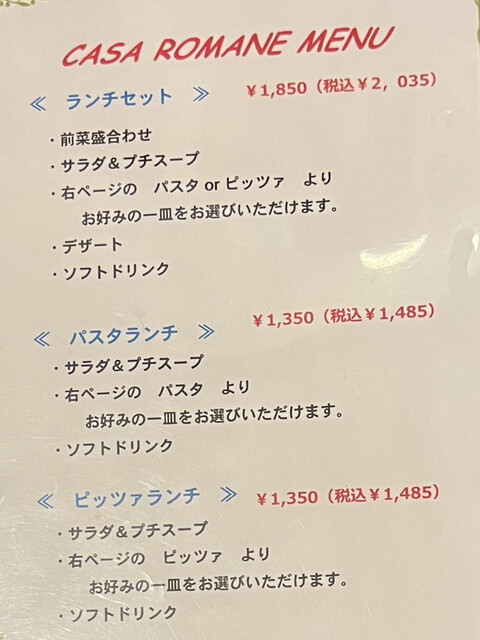 CASA ROMANE MENU
≪ ランチセット ≫ ￥1,850（税込￥2, 035）
・前菜盛合わせ
・サラダ＆プチスープ
・右ページの パスタ or ピッツァ より
お好みの一皿をお選びいただけます。
・デザート
・ソフトドリンク
≪ パスタランチ ≫ ￥1,350（税込￥1,485）
・サラダ＆プチスープ
・右ページの パスタ より
お好みの一皿をお選びいただけます。
・ソフトドリンク
≪ ピッツァランチ ≫ ￥1,350（税込￥1,485）
・サラダ＆プチスープ
・右ページの ピッツァ より
お好みの一皿をお選びいただけます。
・ソフトドリンク